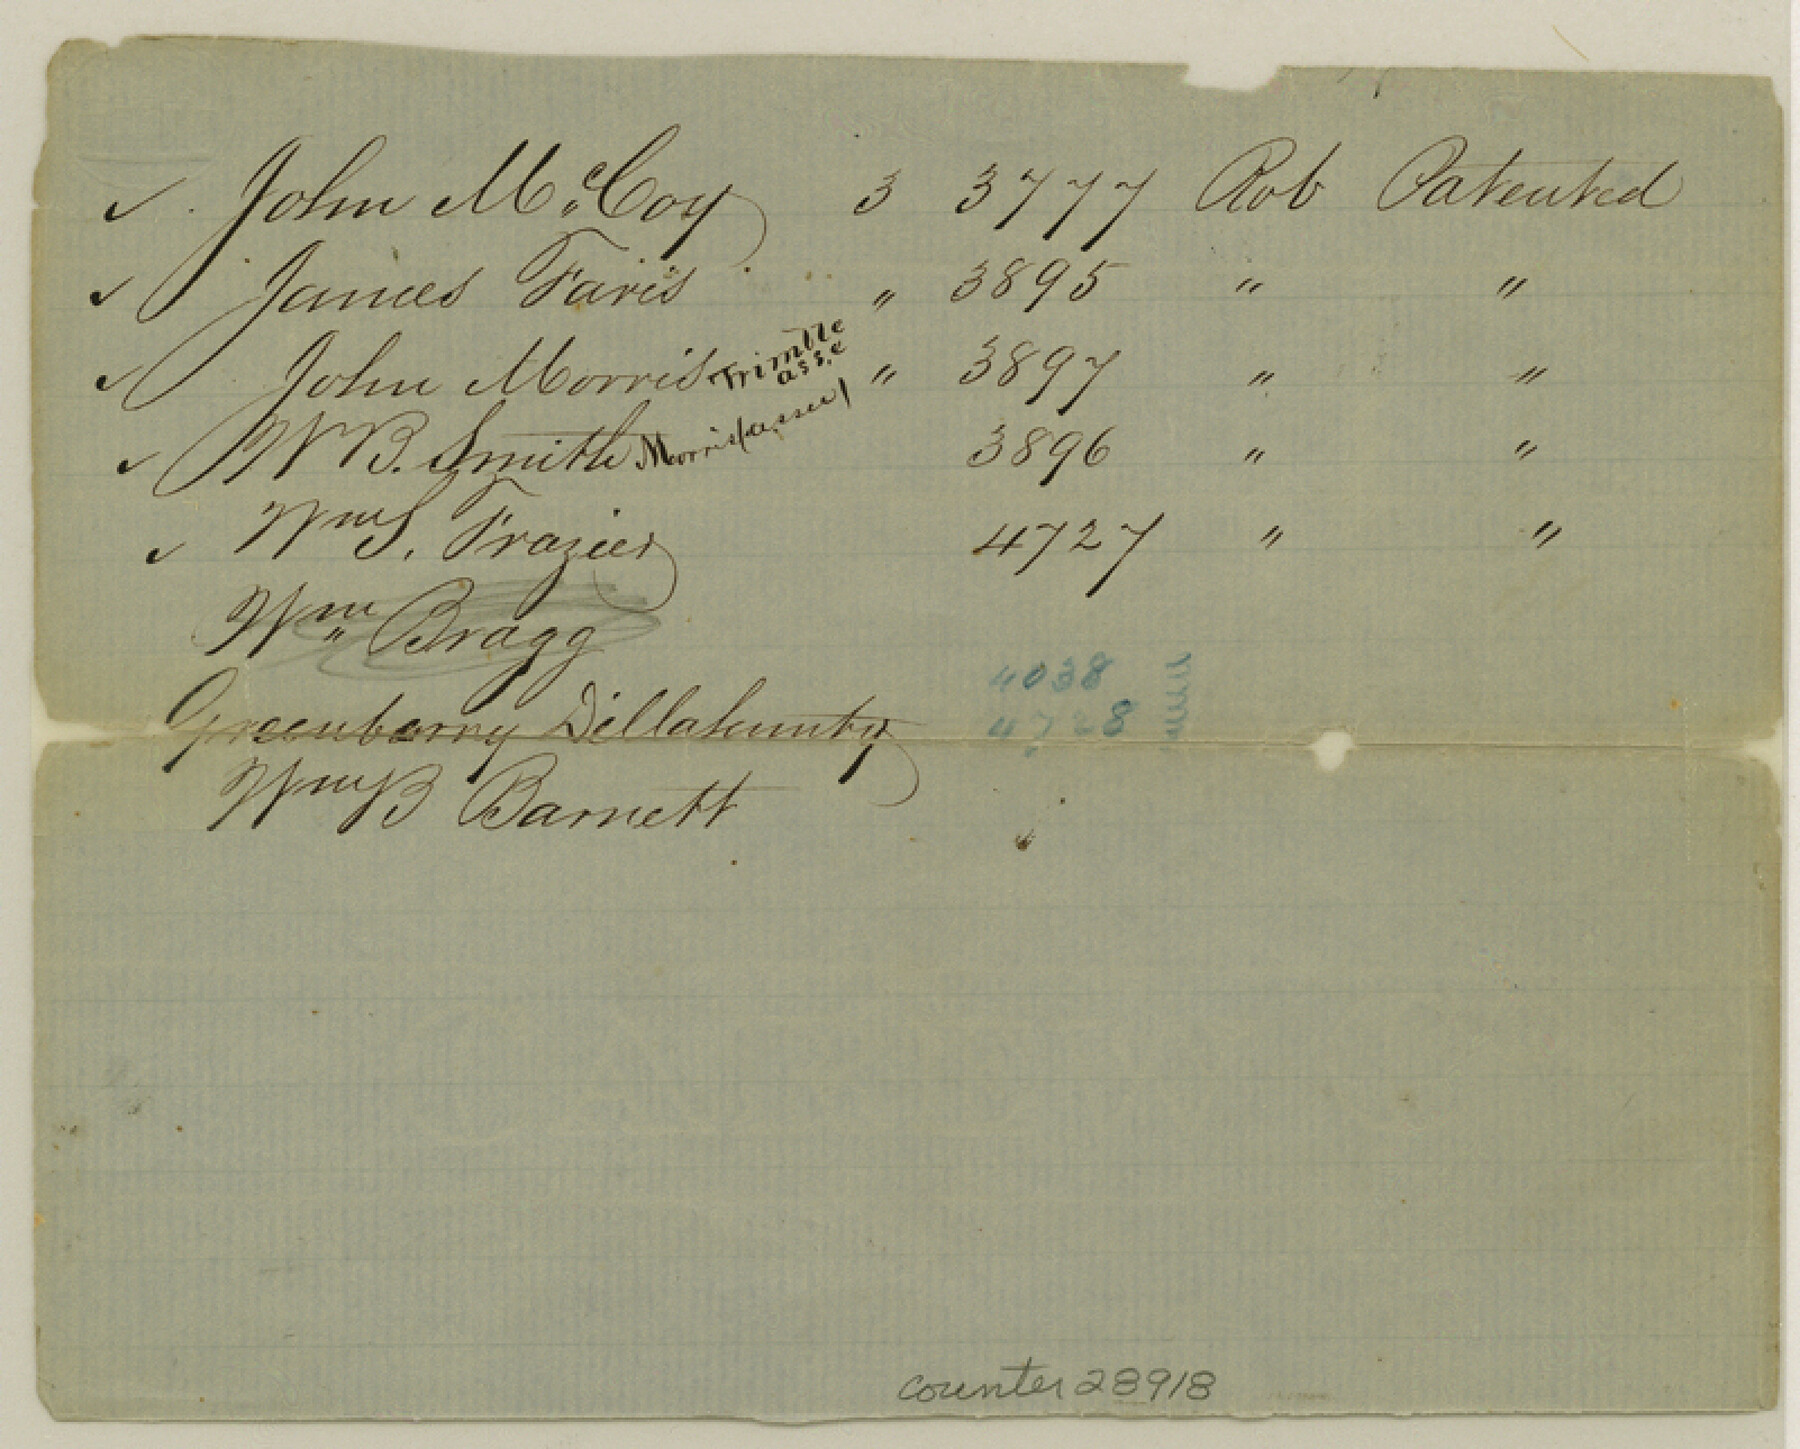 ✓ John McCoy 3 3777 Rob Patented
✓ James Faris " 3895 " "
✓ John Morris Trimble asse " 3897 " "
✓ W B. Smith Morris (assee) 3896 " "
✓ Wm S. Frazier 4727 " "
Wm Bragg
4038
Greenberry Dillahunty 4728
Wm B Barnett
counter 28918